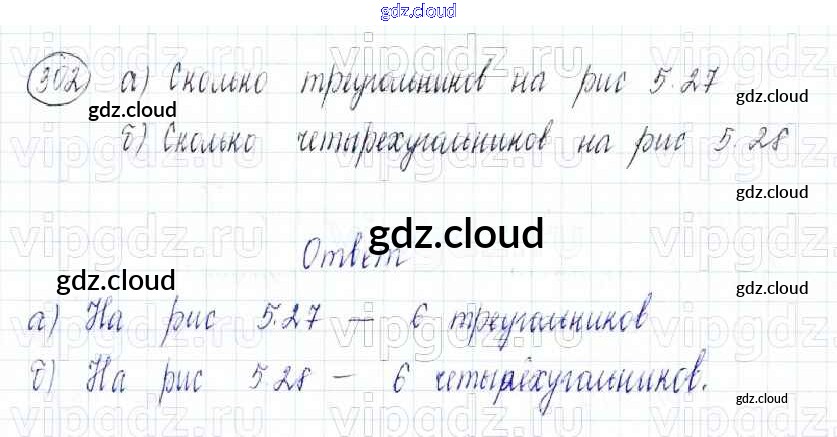 gdz.cloud
302 а) Сколько треугольников на рис 5.27
gdz.cloud gdz.cloud
б) Сколько четырехугольников на рис 5.28
gdz.cloud
gdz.cloud
Ответ
gdz.cloud
а) На рис 5.27 — 6 треугольников
gdz.cloud
б) На рис 5.28 — 6 четырёхугольников.
gdz.cloud